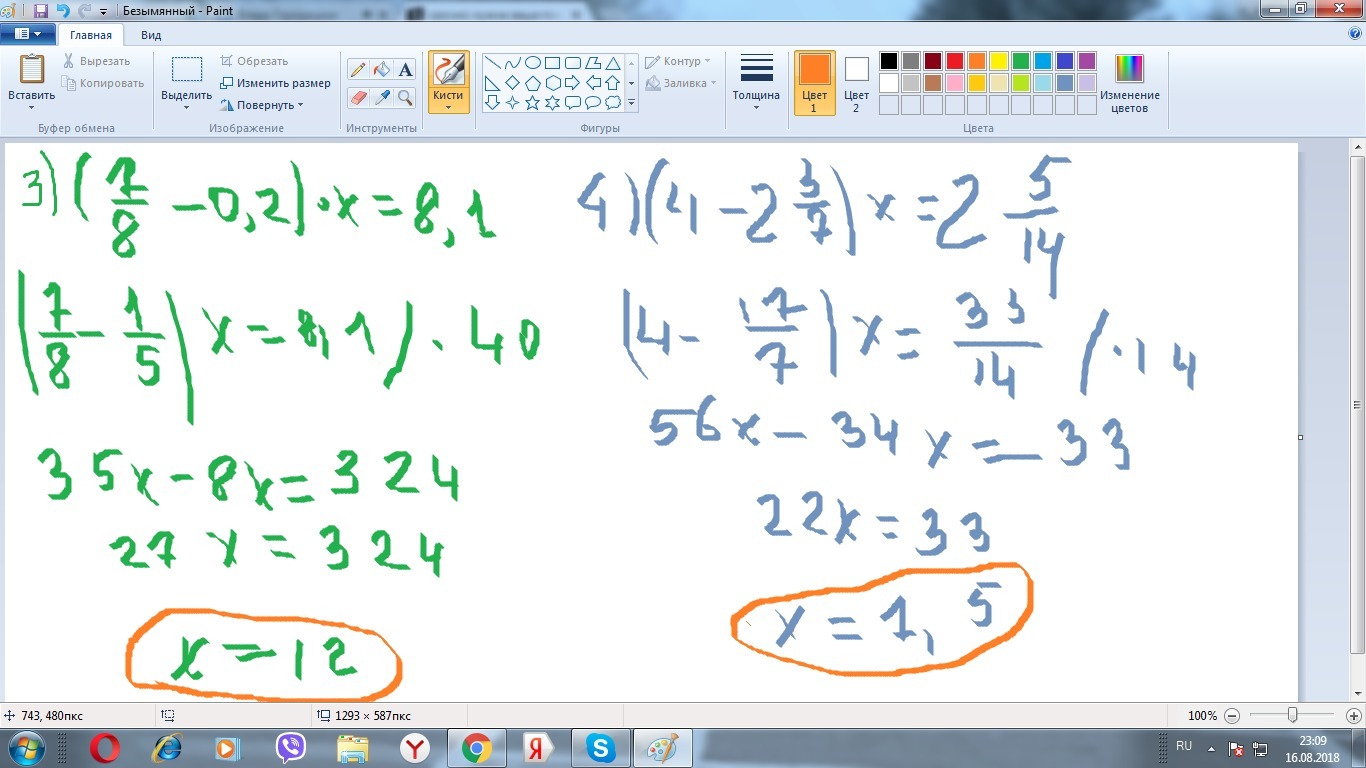 Безымянный - Paint
Главная Вид
Вставить
Вырезать
Копировать
Буфер обмена
Выделить
Обрезать
Изменить размер
Повернуть
Изображение
A
Инструменты
Кисти
Контур
Заливка
Фигуры
Толщина
Цвет 1
Цвет 2
Изменение цветов
Цвета
3) (7/8 - 0,2) · x = 8,1
(7/8 - 1/5) x = 8,1 / · 40
35x - 8x = 324
27 x = 324
x = 12
4) (4 - 2 3/7) x = 2 5/14
(4 - 17/7) x = 33/14 / · 14
56x - 34x = 33
22x = 33
x = 1,5
743, 480пкс
1293 × 587пкс
100%
RU
23:09
16.08.2018